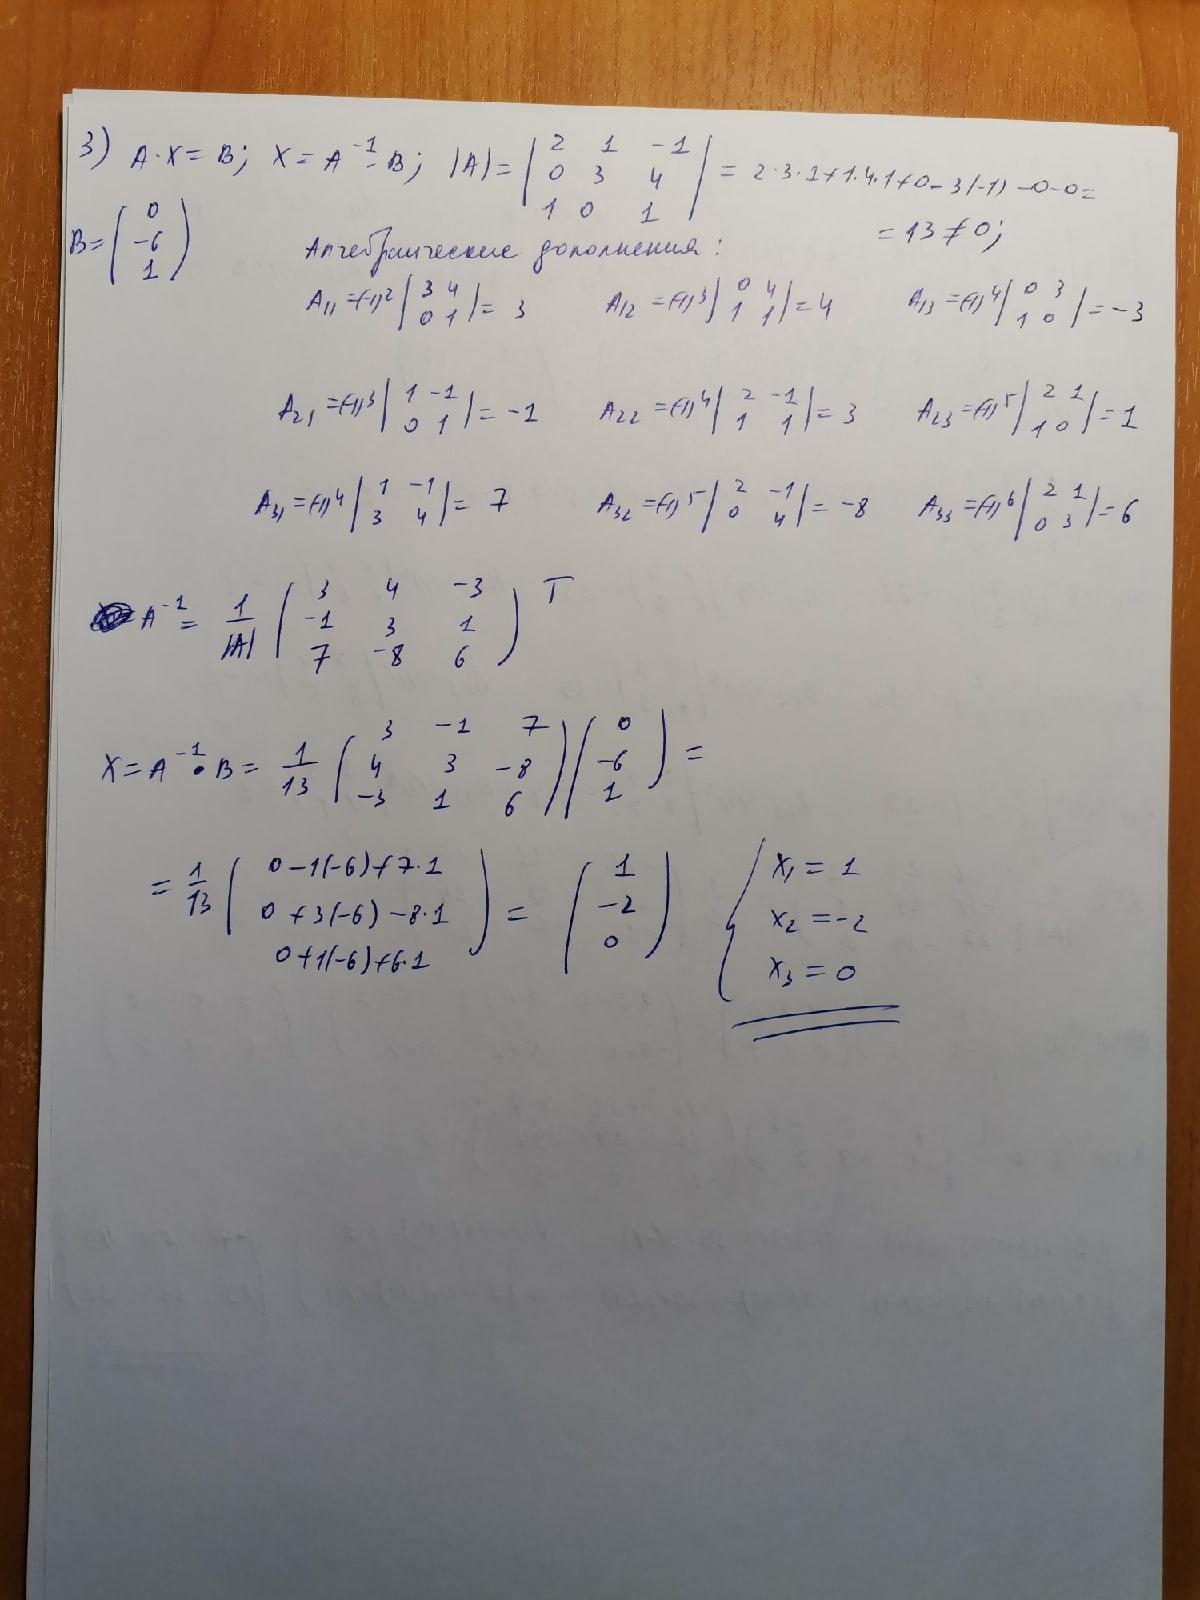 3) A·X = B; X = A⁻¹·B; |A| = | 2 1 -1 | = 2·3·1+1·4·1+0-3(-1)-0-0=
| 0 3 4 |
| 1 0 1 |
B = ( 0 -6 1 )
= 13 ≠ 0;
Алгебраические дополнения:
A₁₁ = (-1)² | 3 4 0 1 | = 3 A₁₂ = (-1)³ | 0 4 1 1 | = 4 A₁₃ = (-1)⁴ | 0 3 1 0 | = -3
A₂₁ = (-1)³ | 1 -1 0 1 | = -1 A₂₂ = (-1)⁴ | 2 -1 1 1 | = 3 A₂₃ = (-1)⁵ | 2 1 1 0 | = 1
A₃₁ = (-1)⁴ | 1 -1 3 4 | = 7 A₃₂ = (-1)⁵ | 2 -1 0 4 | = -8 A₃₃ = (-1)⁶ | 2 1 0 3 | = 6
A⁻¹ = 1/|A| ( 3 4 -3
-1 3 1
7 -8 6 ) T
X = A⁻¹·B = 1/13 ( 3 -1 7 ) ( 0 ) =
( 4 3 -8 ) ( -6 )
( -3 1 6 ) ( 1 )
= 1/13 ( 0-1(-6)+7·1 ) = ( 1 ) { x₁ = 1
( 0+3(-6)-8·1 ) ( -2 ) x₂ = -2
( 0+1(-6)+6·1 ) ( 0 ) x₃ = 0